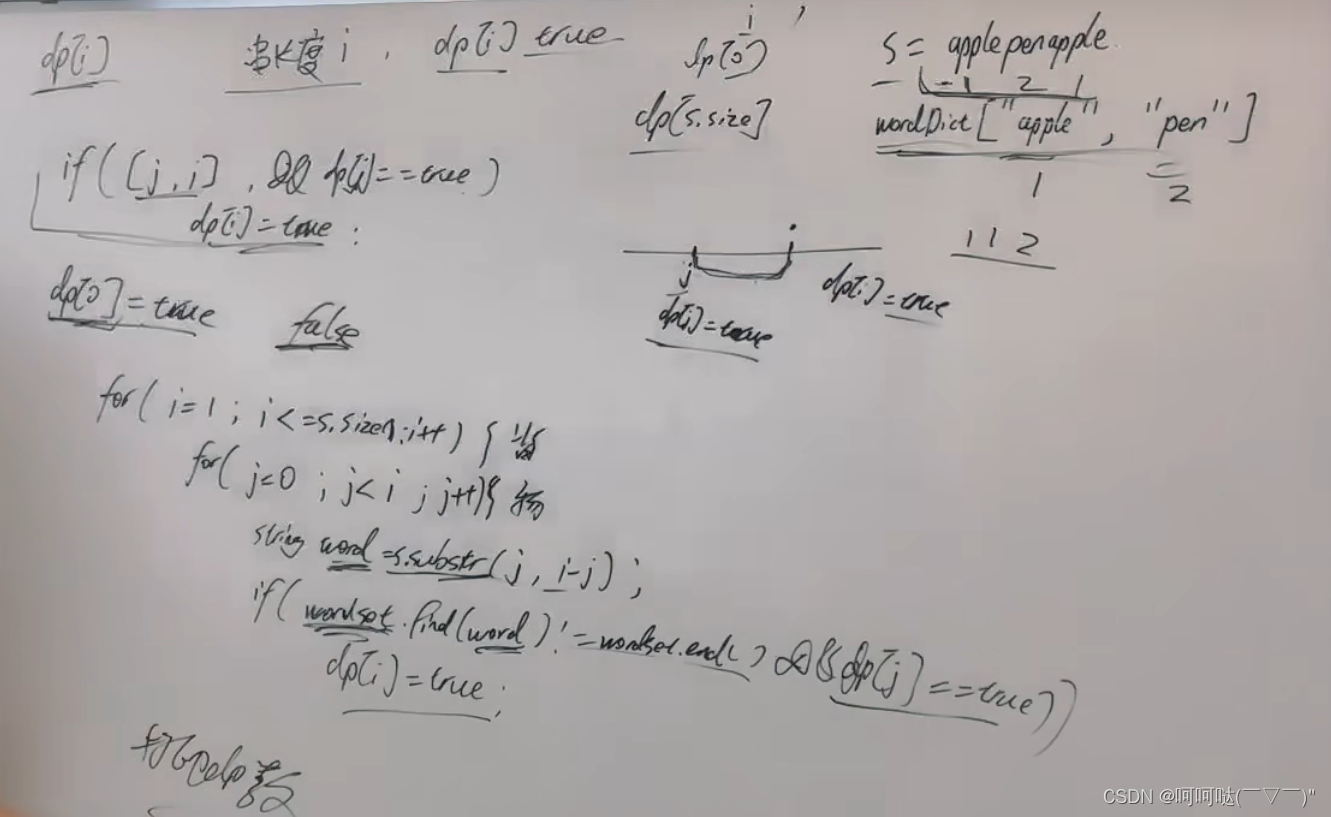 dp[i] 当长度 i , dp[i] true
dp[0]
i
dp[s.size]
s = applepenapple
1 2 1
wordDict["apple", "pen"]
1 2
1 1 2
if([j,i] , && dp[j]==true)
dp[i]=true;
dp[0]=true false
j
dp[j]=true
dp[i]=true
for(i=1; i<=s.size();i++){ 背
for(j=0; j<i; j++){ 物
string word=s.substr(j, i-j);
if(wordset.find(word)!=wordset.end() && dp[j]==true))
dp[i]=true;
打印dp数
CSDN @呵呵哒(￣▽￣)"